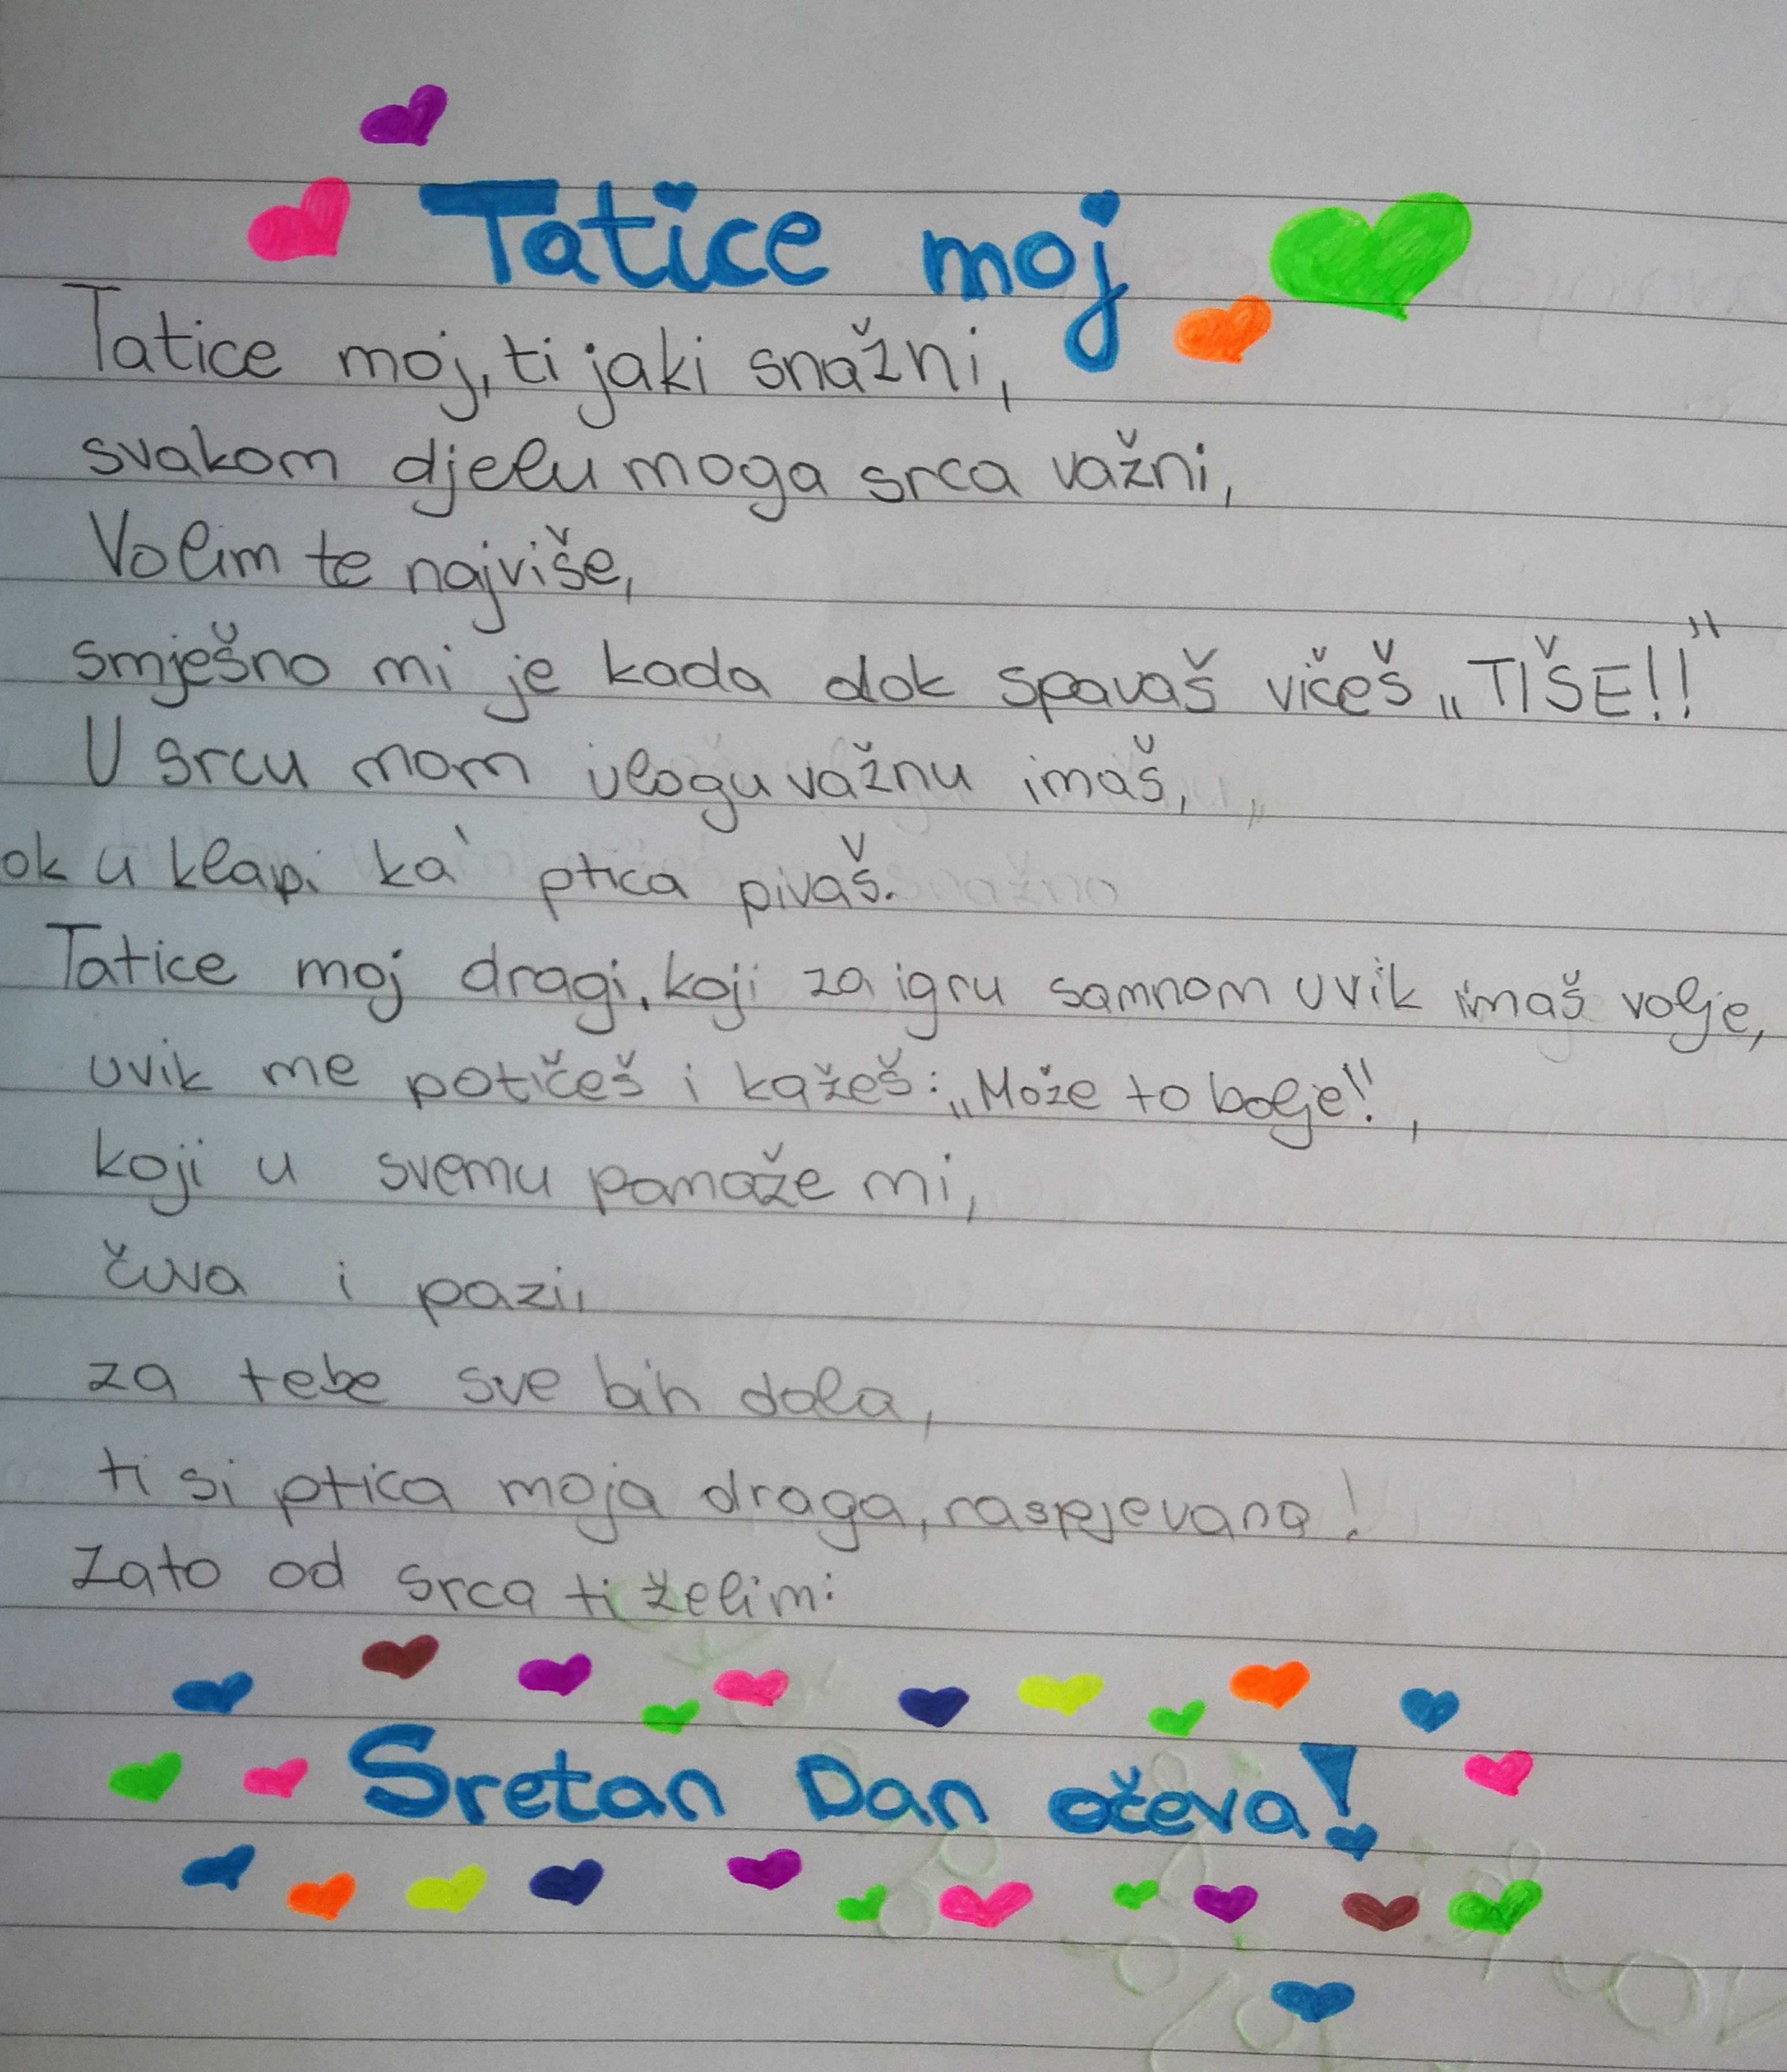 Tatice moj
Tatice moj, ti jaki snažni,
svakom djelu moga srca važni,
Volim te najviše,
smješno mi je kada dok spavaš vičeš „TIŠE!!"
U srcu mom ulogu važnu imaš,
ok u klapi ka' ptica pivaš.
Tatice moj dragi, koji za igru samnom uvik imaš volje,
uvik me potičeš i kažeš: „Može to bolje!",
koji u svemu pomaže mi,
čuva i pazi,
za tebe sve bih dala,
ti si ptica moja draga, raspjevana!
Zato od srca ti želim:
Sretan Dan očeva!